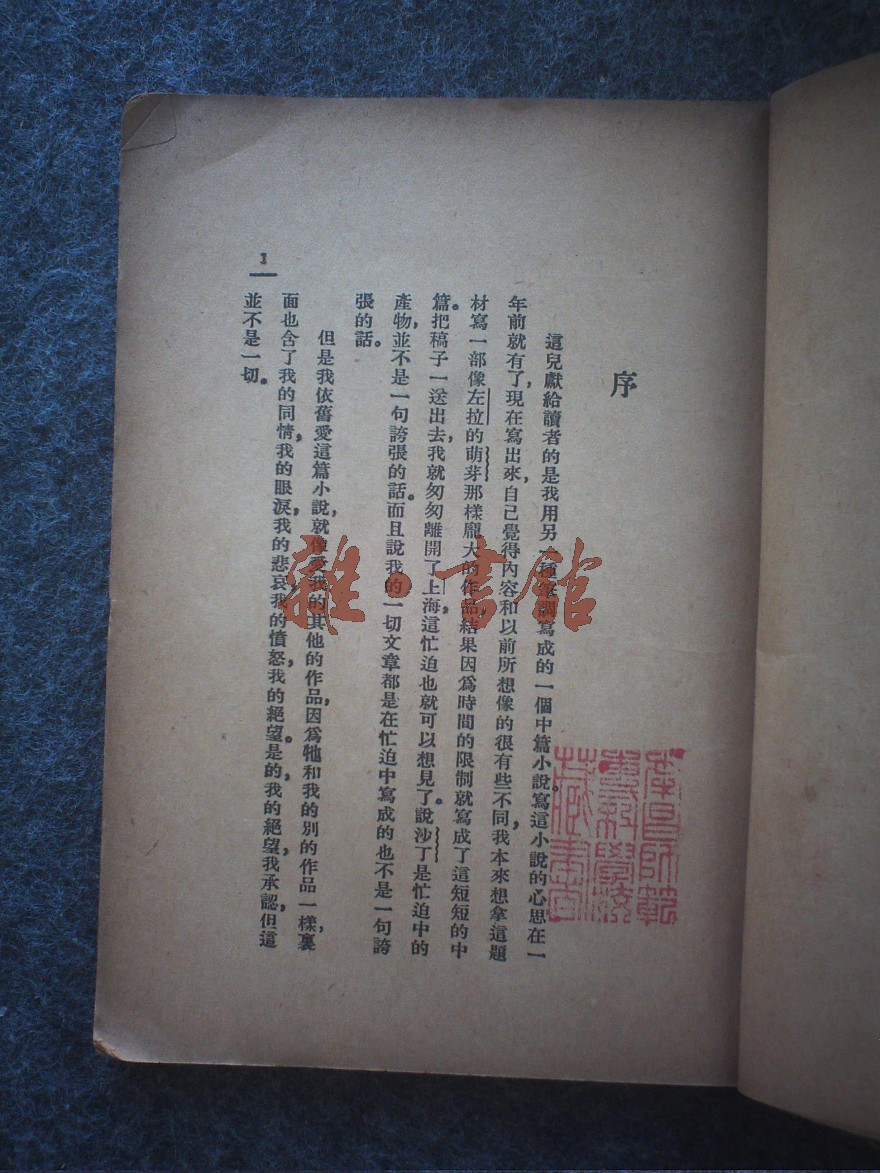 序
這兒獻給讀者的是我用另一種筆調寫成的一個中篇小說。寫這小說的心思在一
年前就有了，現在寫出來，自己覺得內容和以前所想像的很有些不同，我本來想拿這題
材寫一部像左拉的萌芽那樣龐大的作品，結果因為時間的限制就寫成了這短短的中
篇。把稿子一送出去，我就匆匆離開了上海，這忙迫也就可以想見了。說沙丁是忙迫中的
產物，並不是一句誇張的話。而且說我的一切文章都是在忙迫中寫成的也不是一句誇
張的話。
但是我依舊愛這篇小說，就像愛我的其他的作品，因為牠和我的別的作品一樣，裏
面也含了我的同情，我的眼淚，我的悲哀，我的憤怒，我的絕望。是的，我的絕望，我承認，但這
並不是一切。
1
雜·書館
師範
專科學校
藏書